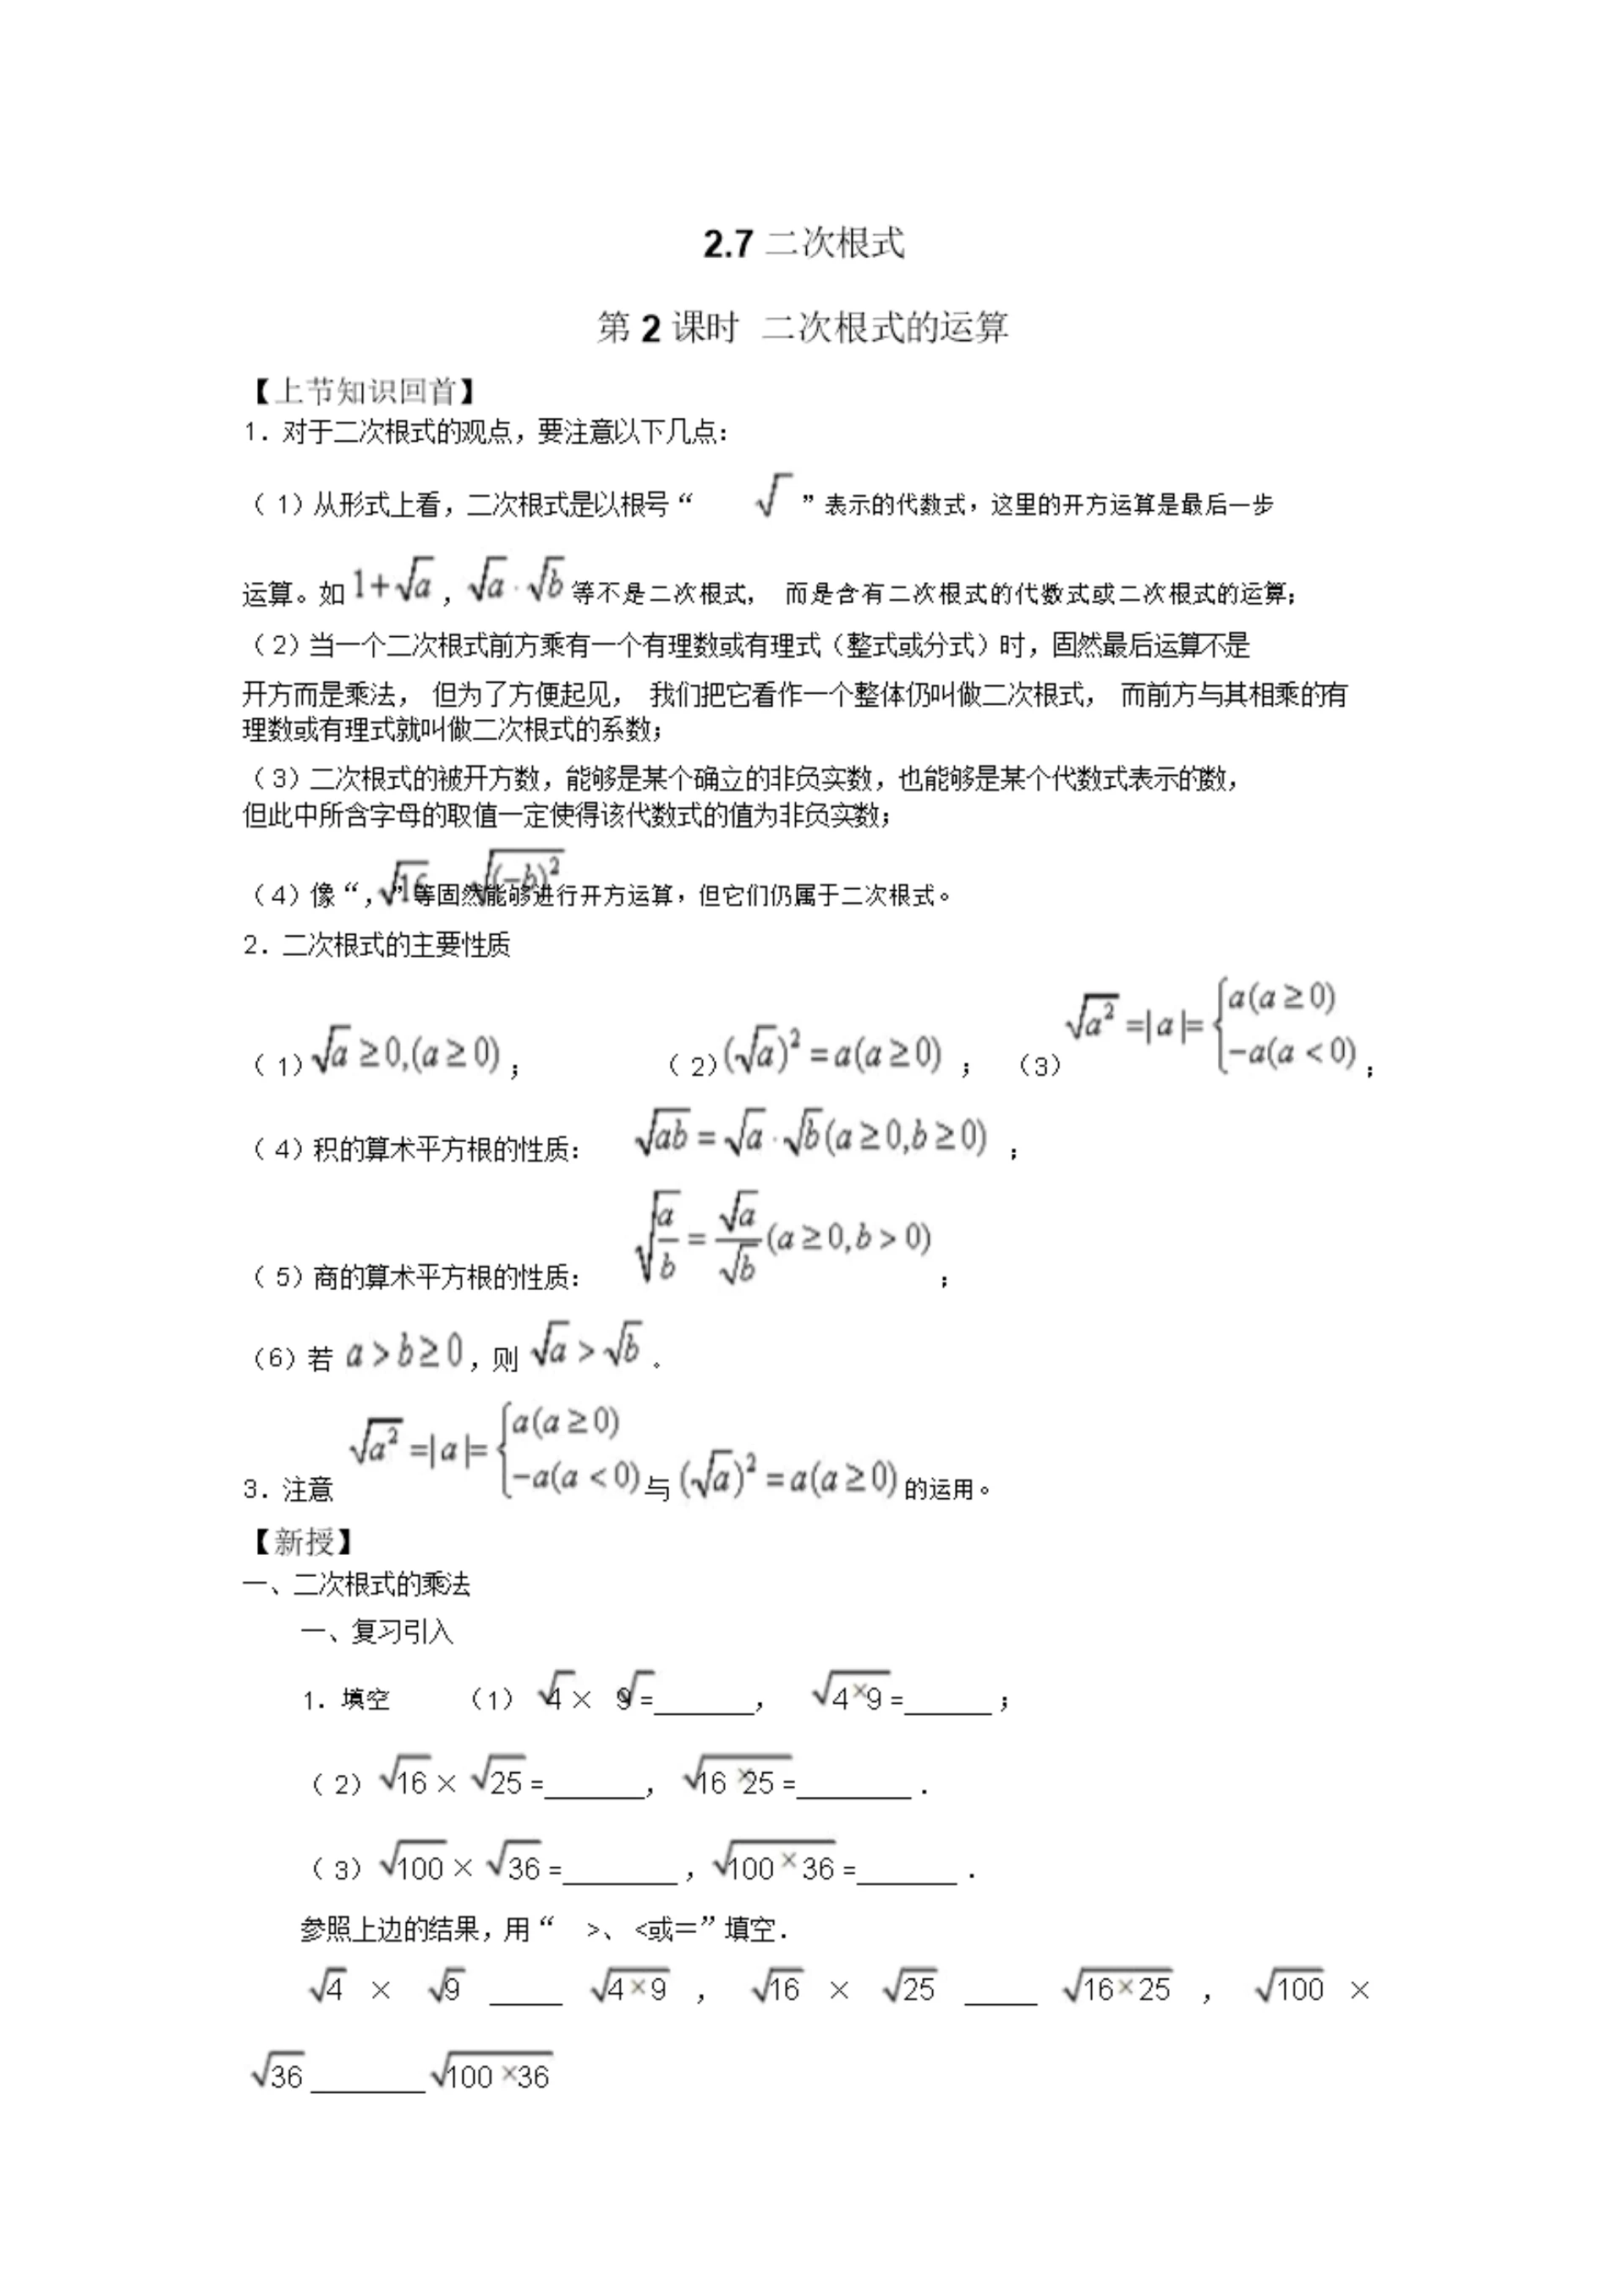 2.7 二次根式
第 2 课时 二次根式的运算
【上节知识回首】
1. 对于二次根式的观点，要注意以下几点：
（1）从形式上看，二次根式是以根号“ √ ”表示的代数式，这里的开方运算是最后一步
运算。如 1+√a ， √a · √b 等不是二次根式， 而是含有二次根式的代数式或二次根式的运算；
（2）当一个二次根式前方乘有一个有理数或有理式（整式或分式）时，固然最后运算不是
开方而是乘法， 但为了方便起见， 我们把它看作一个整体仍叫做二次根式， 而前方与其相乘的有
理数或有理式就叫做二次根式的系数；
（3）二次根式的被开方数，能够是某个确立的非负实数，也能够是某个代数式表示的数，
但此中所含字母的取值一定使得该代数式的值为非负实数；
（4）像“√16，√(−b)²”等固然能够进行开方运算，但它们仍属于二次根式。
2. 二次根式的主要性质
（1）√a ≥0,(a≥0)； （2）(√a)²=a(a≥0)； （3）√a² =|a|={a(a≥0) −a(a<0)；
（4）积的算术平方根的性质： √ab = √a · √b (a≥0,b≥0) ；
（5）商的算术平方根的性质： √(a/b) = √a/√b (a≥0,b>0) ；
（6）若 a>b≥0，则 √a > √b 。
3. 注意 √a² =|a|={a(a≥0) −a(a<0) 与 (√a)²=a(a≥0) 的运用。
【新授】
一、二次根式的乘法
一、复习引入
1. 填空 （1） √4× √9=______， √4×9=______；
（2）√16×√25=______， √16×25=______.
（3）√100×√36=______，√100×36=______.
参照上边的结果，用“ >、<或＝”填空.
√4 × √9 ____ √4×9 ， √16 × √25 ____ √16×25 ， √100 ×
√36______√100×36